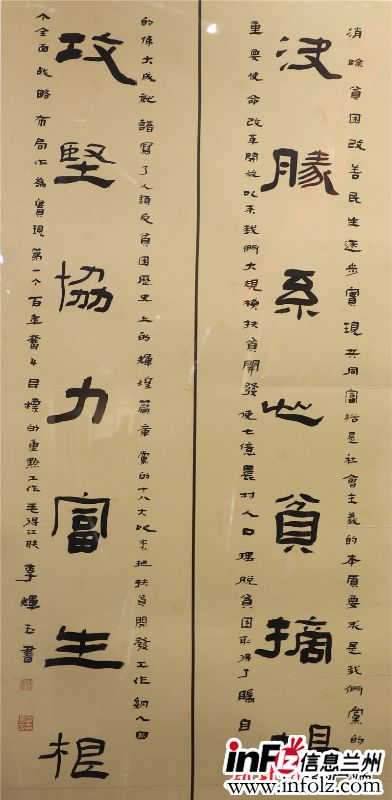 消除貧困改善民生逐步實現共同富裕是社會主義的本質要求是我們黨的
決勝系心貧摘
重要使命改革開放以来我們大規模扶貧開發使七億農村人口擺脫貧困取得了矚目
的偉大成就譜寫了人類反貧困歷史上的輝煌篇章黨的十八大以来把扶貧開發工作納入四
攻堅協力富生根
个全面战略布局作為實現第一个百年奮鬥目標的重點工作毛得江联李輝玉書
infLZ信息兰州
www.infolz.com